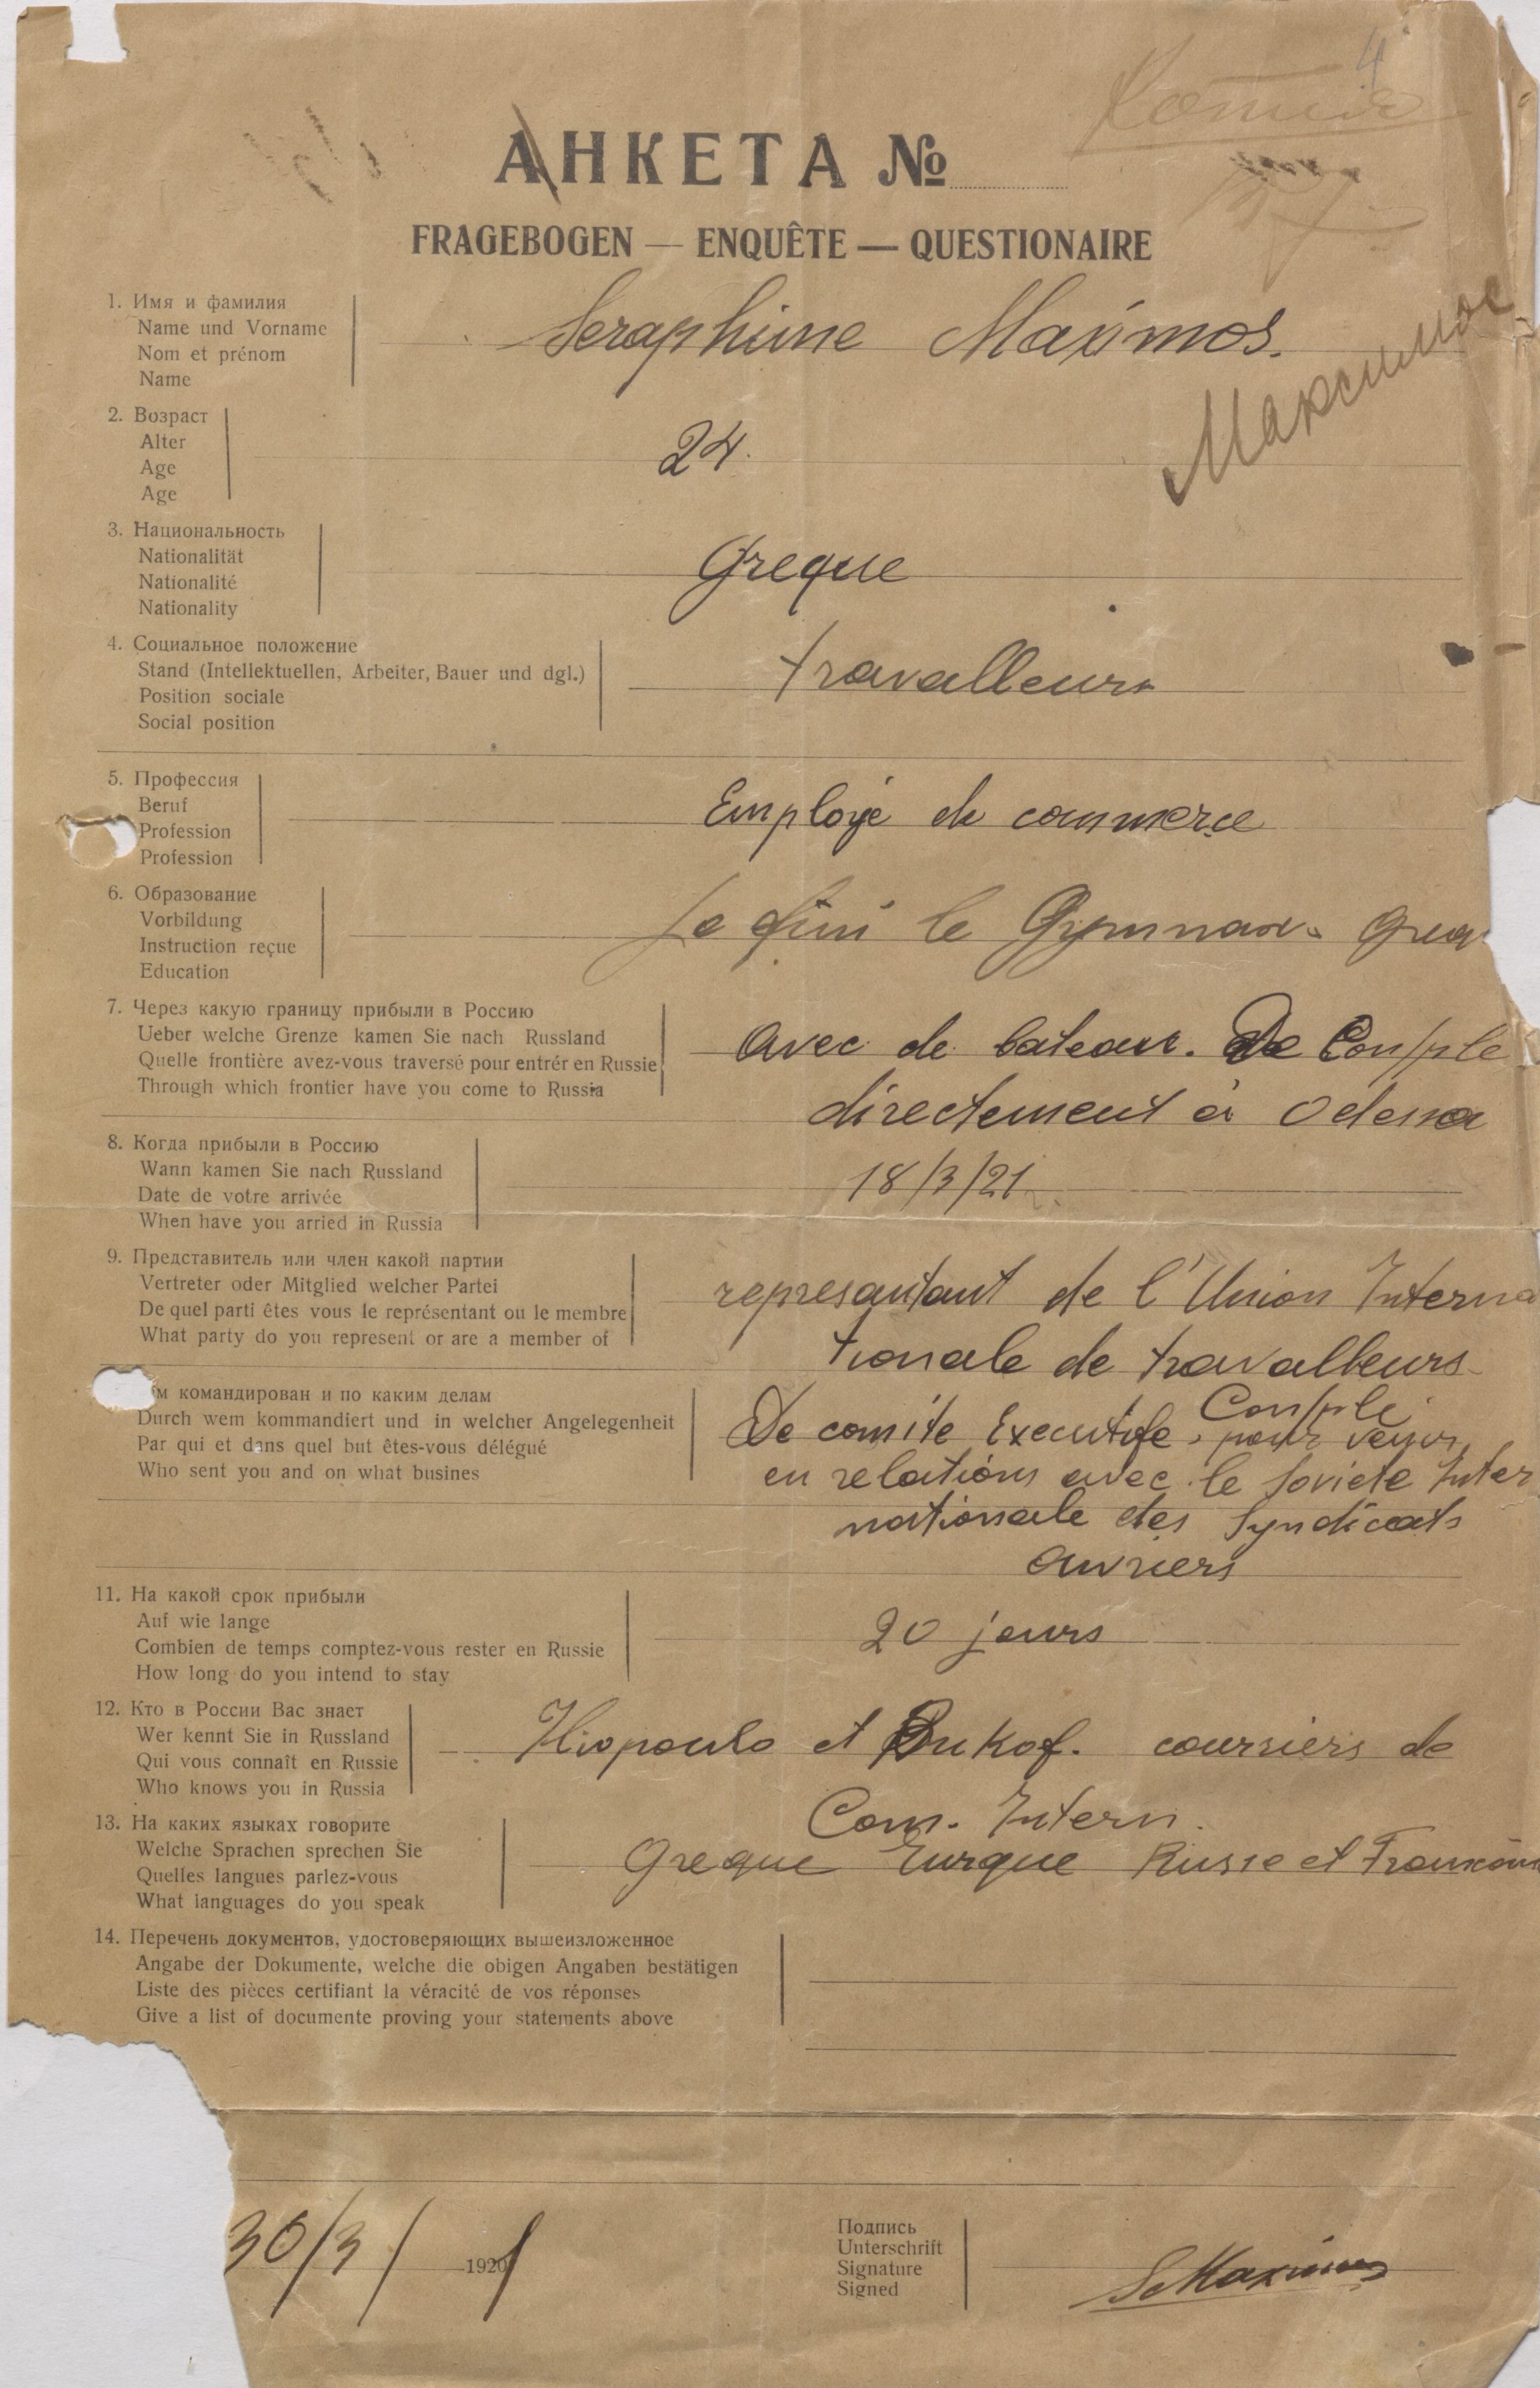 4
Копия
АНКЕТА №
FRAGEBOGEN — ENQUÊTE — QUESTIONAIRE
1. Имя и фамилия
Name und Vorname
Nom et prénom
Name
Seraphime Maximos.
Максимос
2. Возраст
Alter
Age
Age
24.
3. Национальность
Nationalität
Nationalité
Nationality
Greque
4. Социальное положение
Stand (Intellektuellen, Arbeiter, Bauer und dgl.)
Position sociale
Social position
travalleurs
5. Профессия
Beruf
Profession
Profession
Employé de commerce
6. Образование
Vorbildung
Instruction reçue
Education
Je fini le Gymnase
7. Через какую границу прибыли в Россию
Ueber welche Grenze kamen Sie nach Russland
Quelle frontière avez-vous traversé pour entrér en Russie
Through which frontier have you come to Russia
avec de bateau. De Con/ple
directement à Odessa
8. Когда прибыли в Россию
Wann kamen Sie nach Russland
Date de votre arrivée
When have you arried in Russia
18/3/21
9. Представитель или член какой партии
Vertreter oder Mitglied welcher Partei
De quel parti êtes vous le représentant ou le membre
What party do you represent or are a member of
represantant de l'Union Interna
tionale de travalleurs
м командирован и по каким делам
Durch wem kommandiert und in welcher Angelegenheit
Par qui et dans quel but êtes-vous délégué
Who sent you and on what busines
Con/ple
De comite Executife, pour venir
en relations avec le soviete Inter
nationale des Syndicats
ouvriers
11. На какой срок прибыли
Auf wie lange
Combien de temps comptez-vous rester en Russie
How long do you intend to stay
20 jours
12. Кто в России Вас знает
Wer kennt Sie in Russland
Qui vous connaît en Russie
Who knows you in Russia
Iliopoulo et coursiers de
Com. Intern.
13. На каких языках говорите
Welche Sprachen sprechen Sie
Quelles langues parlez-vous
What languages do you speak
Greque Turque Russe et
14. Перечень документов, удостоверяющих вышеизложенное
Angabe der Dokumente, welche die obigen Angaben bestätigen
Liste des pièces certifiant la véracité de vos réponses
Give a list of documente proving your statements above
30/3/ 1920 1
Подпись
Unterschrift
Signature
Signed
S Maximos